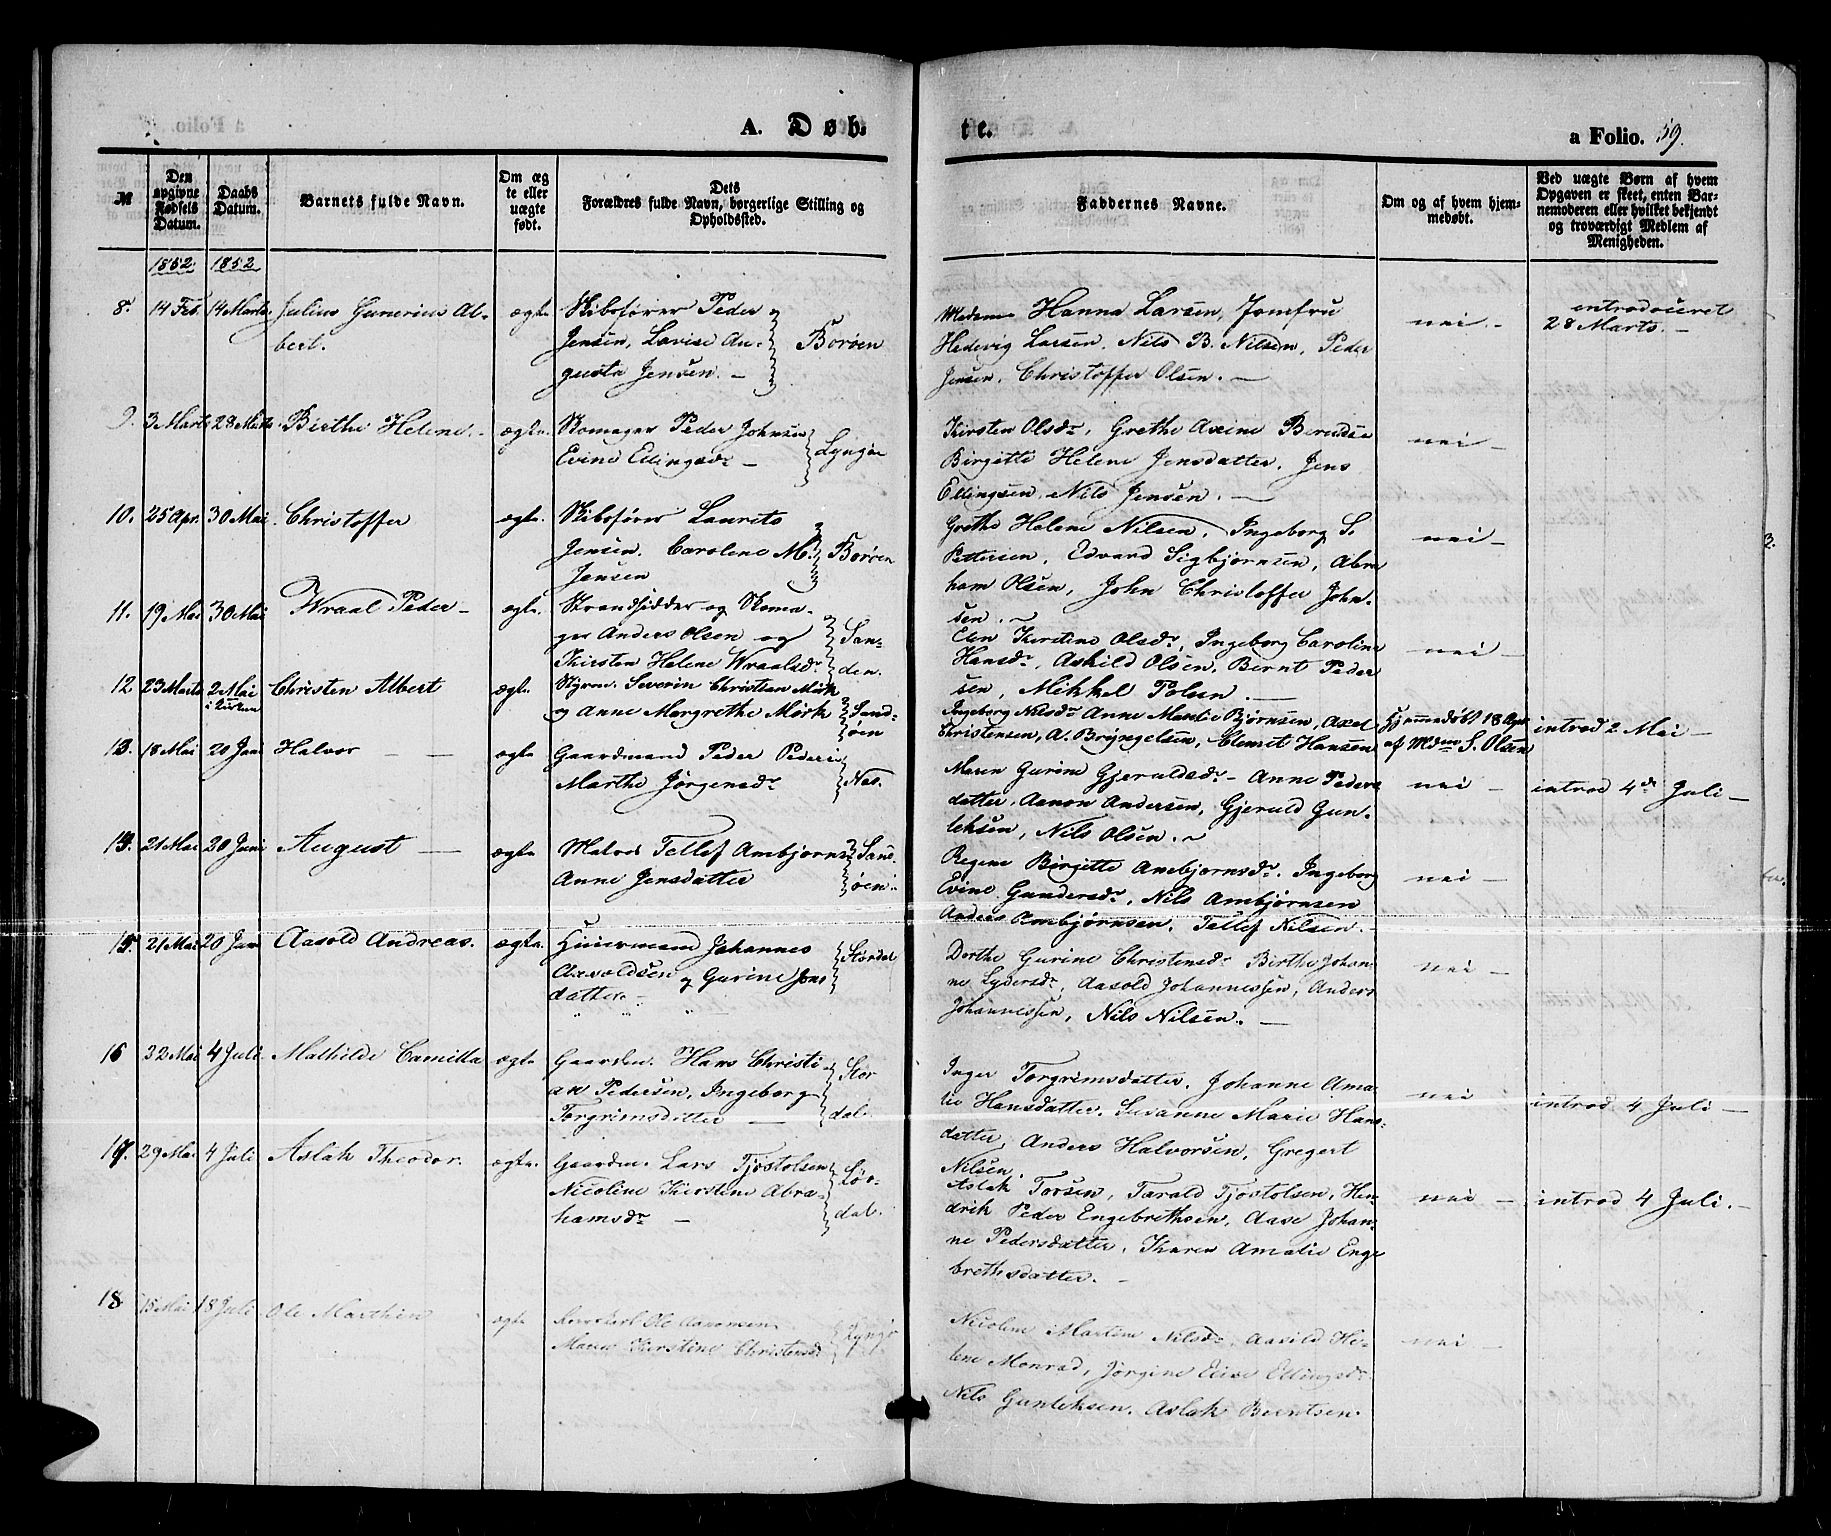 A. Døb
te.
a Folio. 59.
№
Den opgivne Fødsels Datum.
Daabs Datum.
Barnets fulde Navn.
Om æg te eller uægte født.
Dets Forældres fulde Navn, borgerlige Stilling og Opholdssted.
Faddernes Navne.
Om og af hvem hjemmedøbt.
Ved uægte Børn af hvem Opgaven er skeet, enten Barnemoderen eller hvilket bekjendt og troværdigt Medlem af Menigheden.
1852. 1852
8. 14 Feb. 14 Marts. Julius Gunerius Al-
bert.
ægte
Skibsfører Peder
Jensen, Lovise Au-
gusta Jensen. —
Borøen
Madame Hanna Larsen, Jomfru
Hedevig Larsen, Nils B. Nilsen, Peder
Jensen, Christoffer Olsen. —
nei. -
introduseret
28 Marts. —
9. 3 Marts 28 Marts. Birthe Helene. -
ægte.
Skomager Peder Johnsen
Evine Ellingsdr —
Lyngør
Kirsten Olsdr, Grethe Axine Berndsen
Birgitte Helene Jensdatter, Jens
Ellingsen, Nils Jensen. —
nei -
10. 25 Apr. 30 Mai Christoffer
ægte.
Skibsfører Laurits
Jensen. Carolene M.
Jensen
Borøen
Grethe Helene Nilsen, Ingeborg S.
Pettersen, Edvard Sigbjørnsen, Abra
ham Olsen, John Christoffer John-
sen. ~
nei -
11. 19 Mai 30 Mai Wraal Peder -
ægte.
Strandsidder og Skoma-
ger Anders Olsen og
Kirsten Helene Wraalsdr
San-
den.
Elen Kirstine Olsdr, Ingeborg Caroline
Hansdr, Askild Olsen, Bernt Peder
sen, Mikkel Polsen. —
nei —
12 23 Marts 2 Mai
i Kirken
Christen Albert
ægte.
Styrm. Severin Christian Mørk
og Anne Margrethe Mørk
Sand-
øen
Ingeborg Nilsdr Anne Mantie Bjørnsen, Axel
Christensen, A. Bryngelsen, Clemet Hansen
Hjemmedøbt 18 Apr
af Mdm S. Olsen
introd 2 Mai —
13. 18 Mai 20 Juni Halvor — —
ægte
Gaardmand Peder Peders
Marthe Jørgensdr
Nes.
Maren Gurine Gjeruldsdr - Anne Peders
datter, Aanon Andersen, Gjeruld Gun-
leksen, Nils Olsen. ~
nei —
introd 4de Juli —
14. 21 Mai 20 Juni August —
ægte
Matros Tellef Ambjørns
Anne Jensdatter
Sand-
øen
Regine Birgitte Ambjørnsdr. Ingeborg
Evine Gundersdr, Nils Ambjørnsen
Anders Ambjørnsen. Tellef Nilsen. —
nei —
15. 21 Mai 20 Juni Aasold Andreas.
ægte.
Huusmand Johannes
Aasoldsen og Gurine Jens
datter. -
Størdal
Dorthe Gurine Christensdr Birthe Johan-
ne Lydersdr, Aasold Johannessen, Anders
Johannessen, Nils Nilsen. —
nei —
16 32 Mai 4 Juli. Mathilde Camilla
ægte
Gaardm. Hans Christi
an Pedersen, Ingeborg
Torgrimsdatter —
Stor
dal.
Inger Torgrimsdatter. Johanne Ama-
lie Hansdatter. Susanne Marie Hans-
datter, Anders Halvorsen, Gregert
Nilsen.
nei
introd 4 Juli —
17. 29 Mai 4 Juli Aslak Theodor.
ægte.
Gaardm. Lars Tjøstolsen
Nicoline Kirstine Abra-
hamsdr —
Lør-
dal.
Aslak Torsen, Tarald Tjøstolsen, Hen-
drik Peder Engebrethsen, Aase Johan-
ne Pedersdatter, Karen Amalie Enge
brethsdatter. -
nei —
introd 4 Juli. —
18 15 Mai 18 Juli Ole Marthin
ægte
Ole Aanonsen
Maren Kirstine Christensd
Lyngør
Nicoline Martine Nilsdr. Aasild He-
lene Monrad, Jørgine Elise Ellingsdr.
Nils Gunleksen. Aslak Berntsen.
nei —